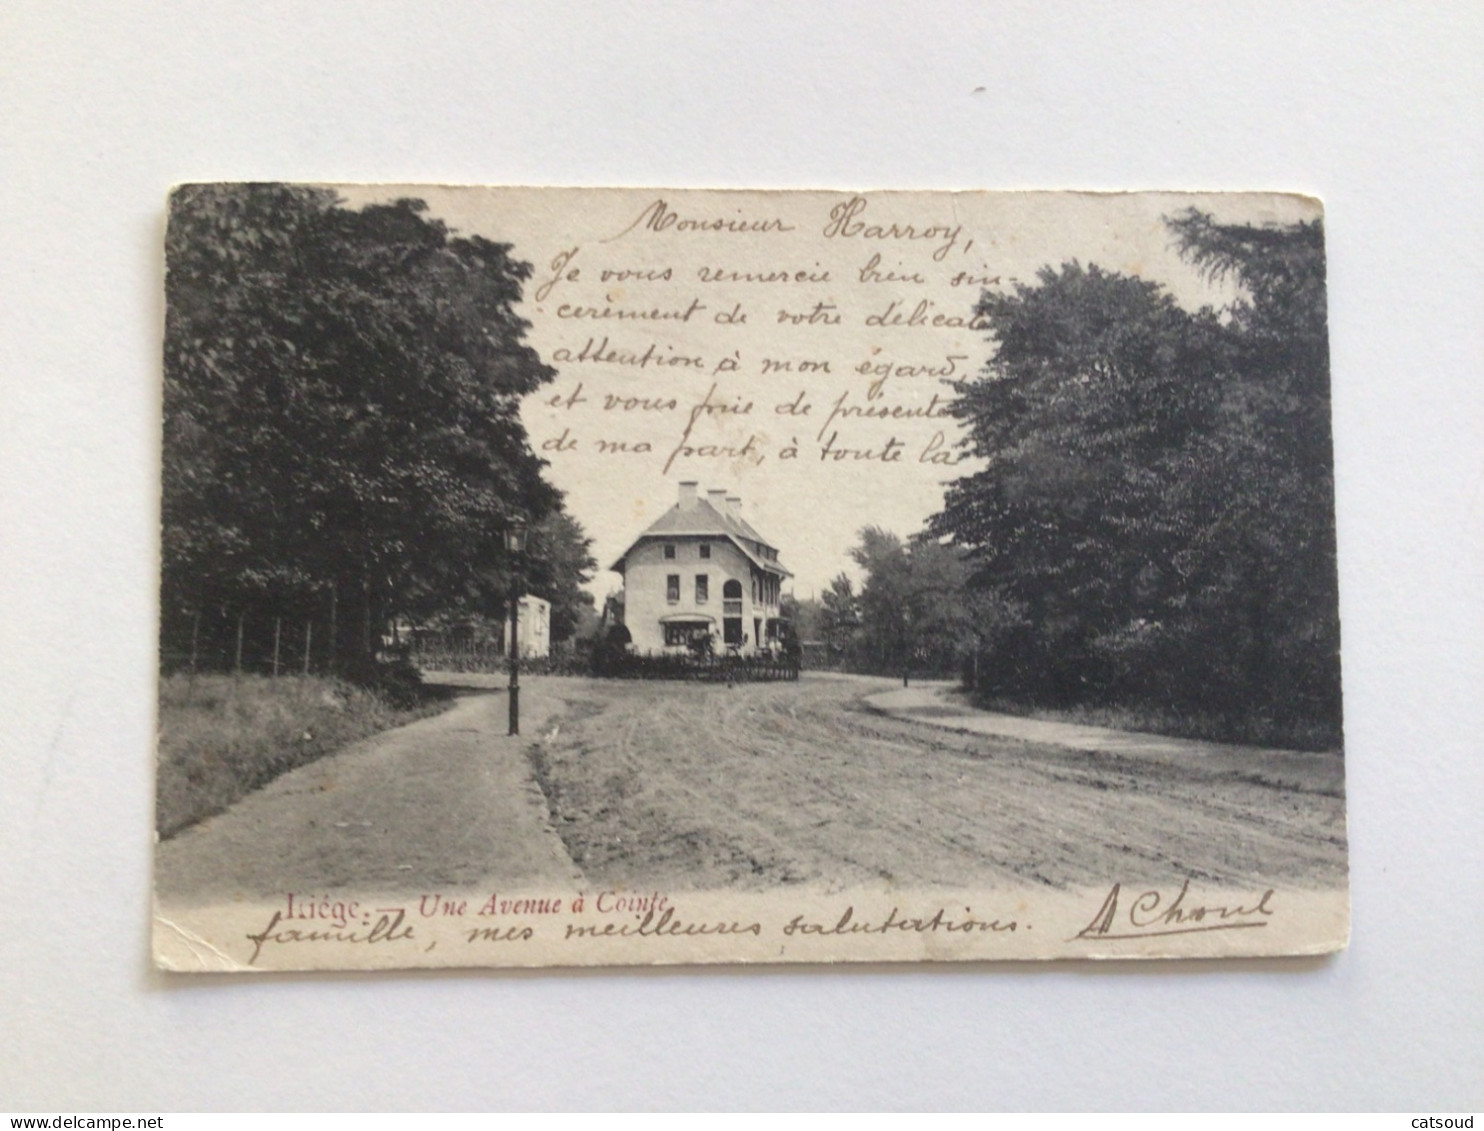 Monsieur Harroy,
Je vous remercie bien sin-
cèrement de votre délicate
attention à mon égard,
et vous prie de présenter
de ma part, à toute la
Liége. — Une Avenue à Cointe.
famille, mes meilleures salutations. A Choul
delcampe.net
catsoud